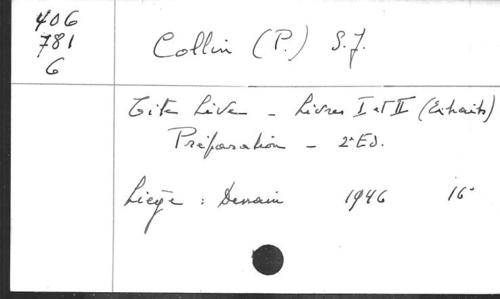 406
781
6
Collin (P.) S.J.
Tite Live - Livres I et II (Extraits)
Préparation - 2e Ed.
Liège : Dessain 1946 16°